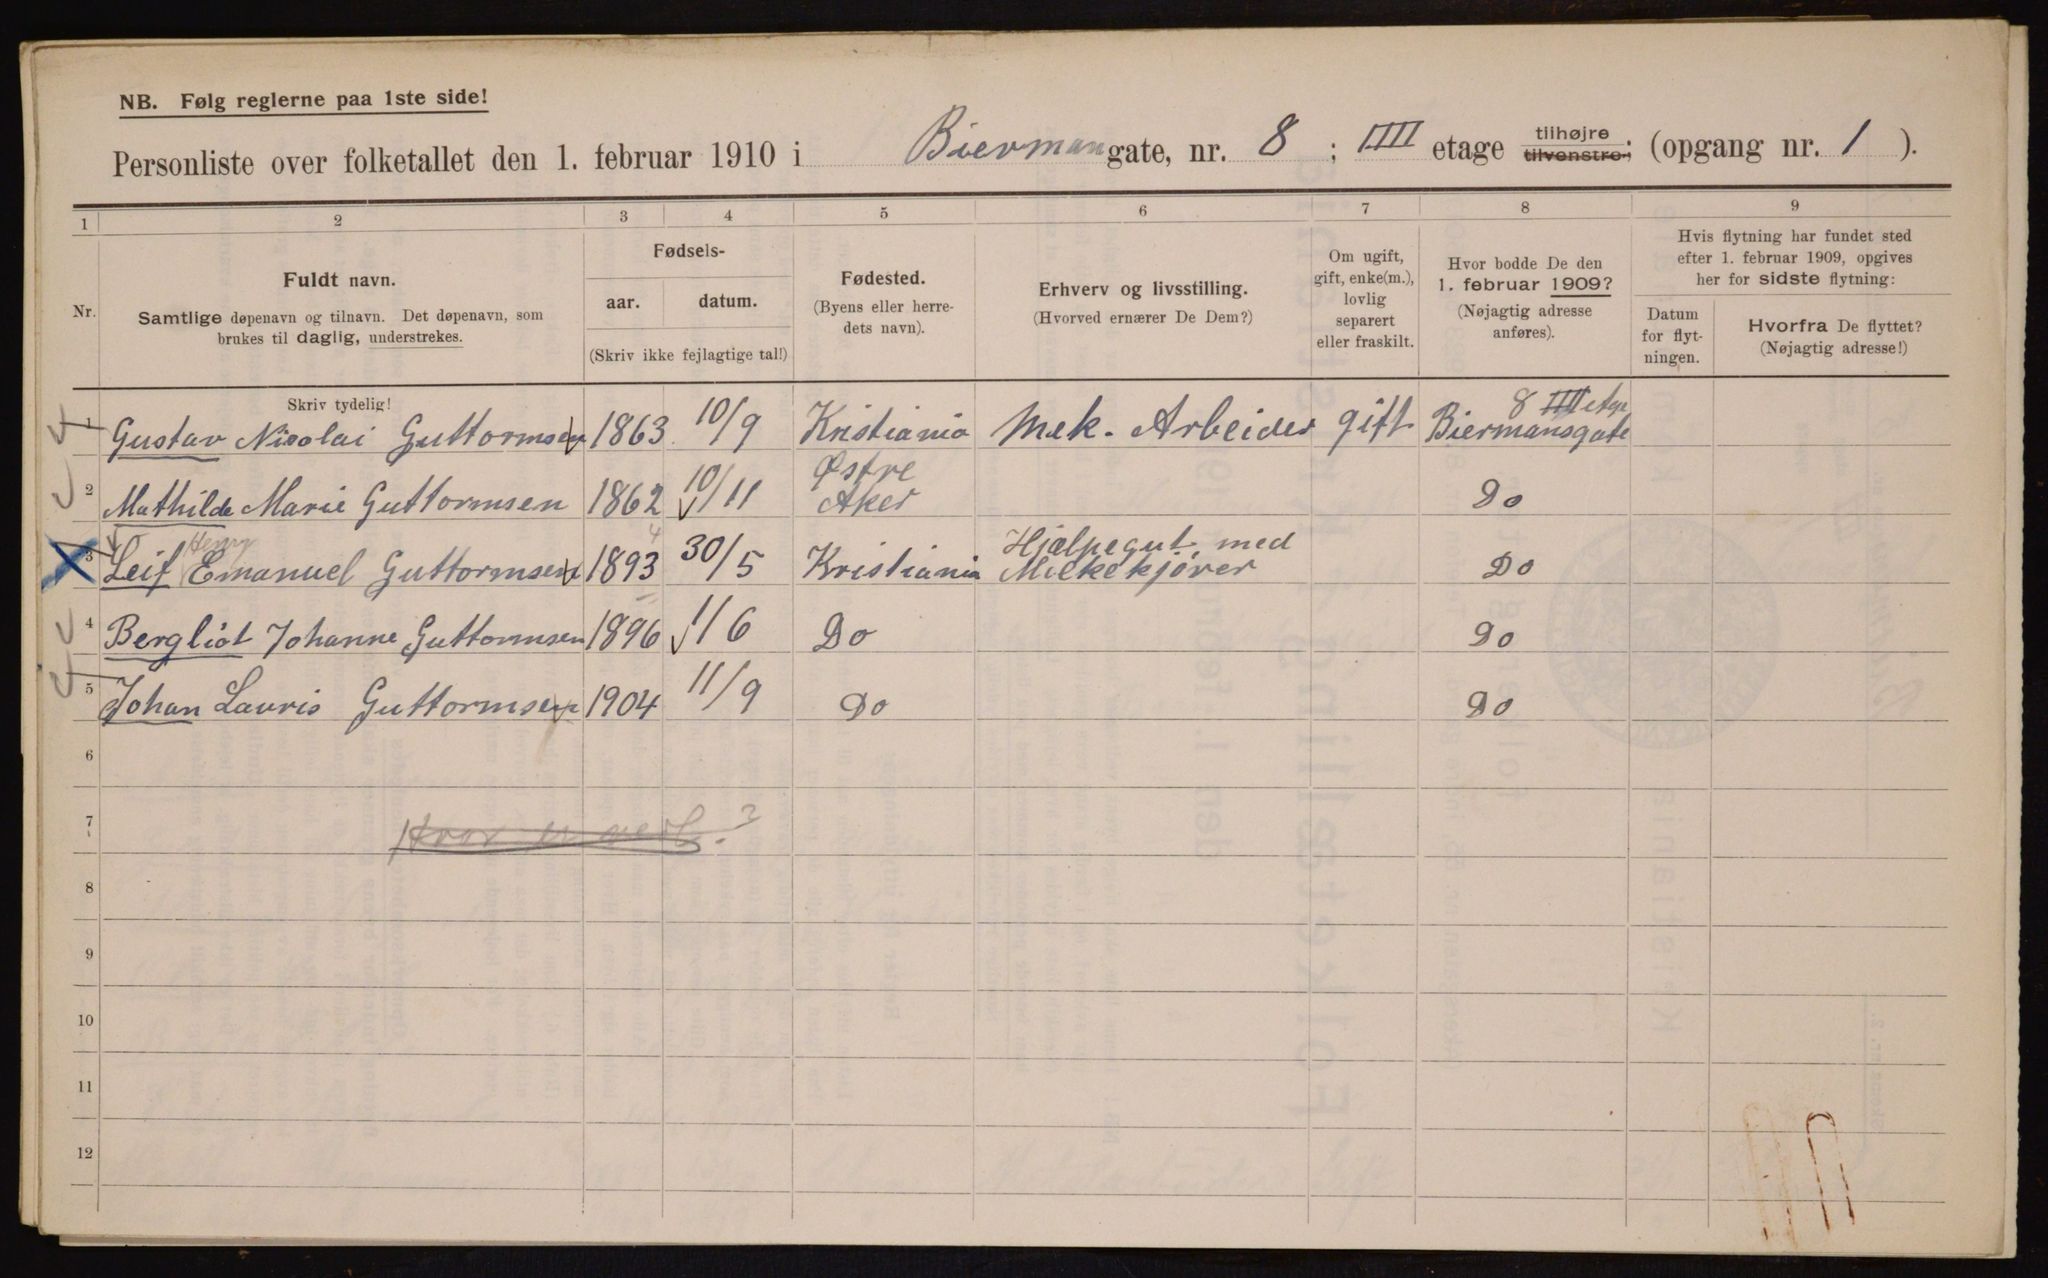 NB. Følg reglerne paa 1ste side!
Personliste over folketallet den 1. februar 1910 i Bierman gate, nr. 8 ; IIII etage tilhøjre tilvenstre; (opgang nr. 1 ).
1 2 3 4 5 6 7 8 9
Nr.
Fuldt navn.
Samtlige døpenavn og tilnavn. Det døpenavn, som
brukes til daglig, understrekes.
Fødsels-
aar. datum.
(Skriv ikke fejlagtige tal!)
Fødested.
(Byens eller herre-
dets navn).
Erhverv og livsstilling.
(Hvorved ernærer De Dem?)
Om ugift,
gift, enke(m.),
lovlig
separert
eller fraskilt.
Hvor bodde De den
1. februar 1909?
(Nøjagtig adresse
anføres).
Hvis flytning har fundet sted
efter 1. februar 1909, opgives
her for sidste flytning:
Datum
for flyt-
ningen.
Hvorfra De flyttet?
(Nøjagtig adresse!)
Skriv tydelig!
1 Gustav Nicolai Guttormsen 1863 10/9 Kristiania Mek. Arbeider gift 8 IIII etage Biermansgate
2 Mathilde Marie Guttormsen 1862 10/11 Østre Aker Do
3 Leif Henry Emanuel Guttormsen 1893 4 30/5 Kristiania Hjælpegut med Melkekjører Do
4 Bergliot Johanne Guttormsen 1896 1/6 Do Do
5 Johan Lauris Guttormsen 1904 11/9 Do Do
6
7 Hvor er ?
8
9
10
11
12